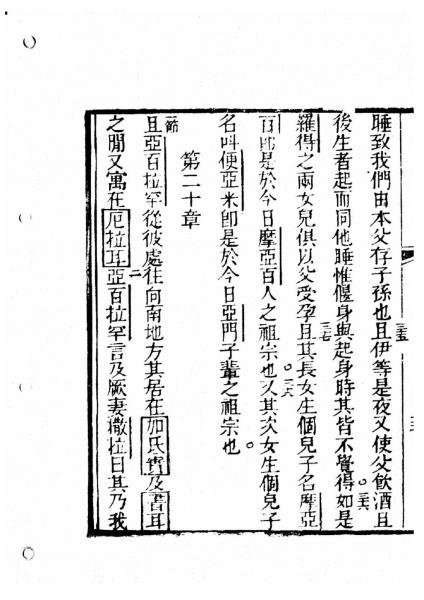 睡致我們由本父存子孫也且伊等是夜又使父飲酒且
三五
後生者起而同他睡惟偃身與起身時其皆不覺得如是
三六
羅得之兩女兒俱以父受孕且其長女生個兒子名摩亞
三七
百卽是於今日摩亞百人之祖宗也又其次女生個兒子
三八
名叫便亞米卽是於今日亞門子輩之祖宗也
第二十章
一節
且亞百拉罕從彼處往向南地方其居在加氏實及書耳
之間又寓在厄拉耳亞百拉罕言及厥妻撒拉曰其乃我
二